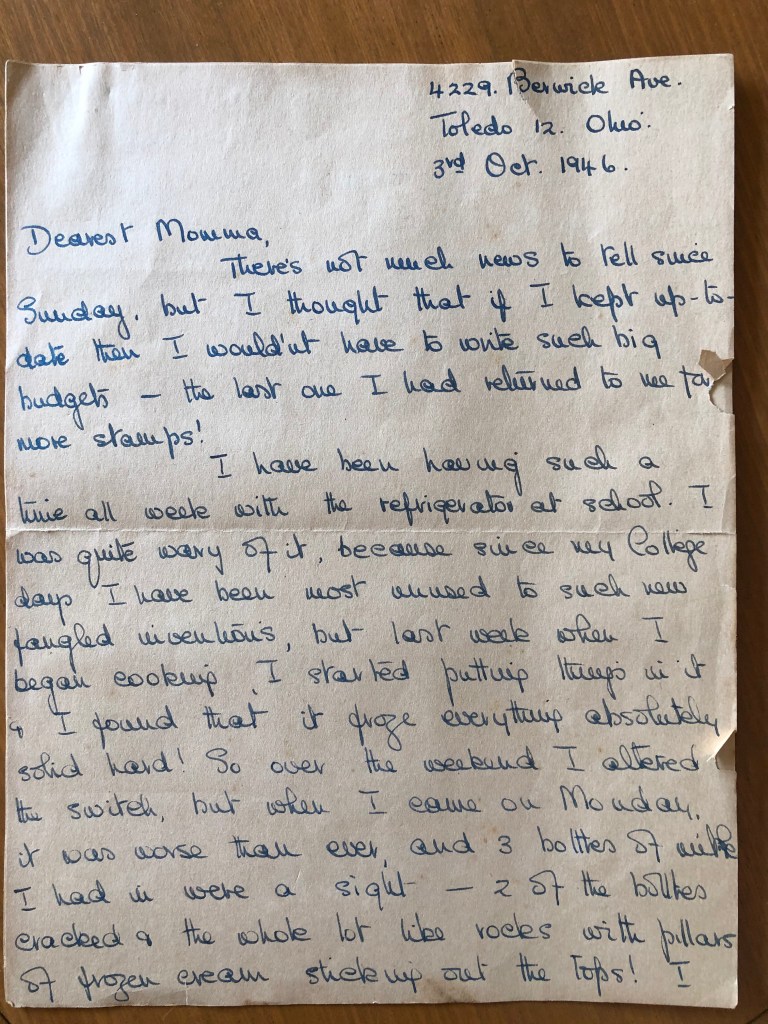 4229. Berwick Ave.
Toledo 12. Ohio.
3rd Oct. 1946.
Dearest Momma,
There's not much news to tell since
Sunday, but I thought that if I kept up-to-
date then I would'nt have to write such big
budgets – the last one I had returned to me for
more stamps!
I have been having such a
time all week with the refrigerator at school. I
was quite wary of it, because since my College
days I have been most unused to such new
fangled inventions, but last week when I
began cooking, I started putting things in it
& I found that it froze everything absolutely
solid hard! So over the weekend I altered
the switch, but when I came on Monday,
it was worse than ever, and 3 bottles of milk
I had in were a sight – 2 of the bottles
cracked & the whole lot like rocks with pillars
of frozen cream sticking out the tops! I